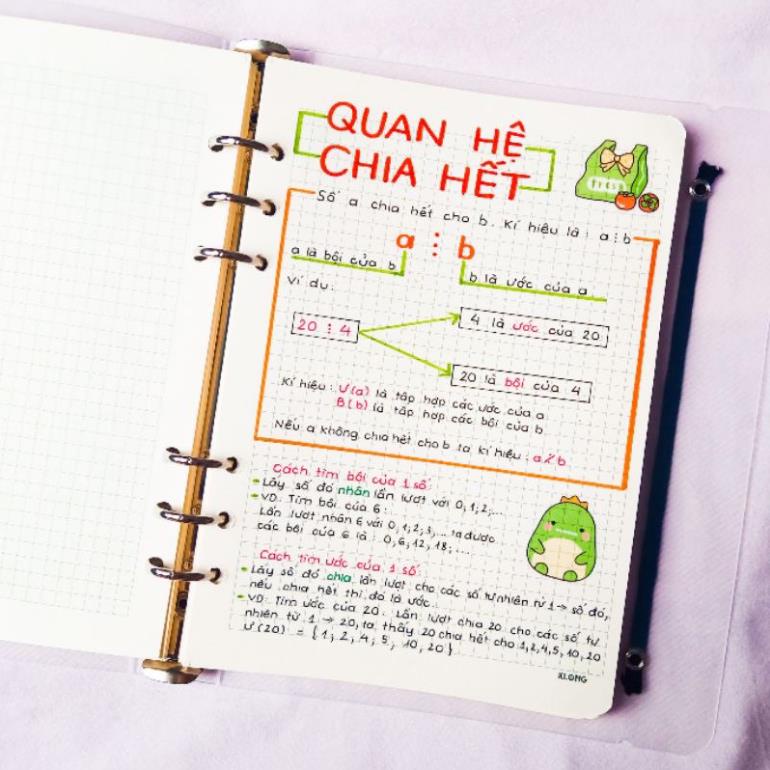 QUAN HỆ
CHIA HẾT
Số a chia hết cho b. Kí hiệu là: a ⋮ b
a ⋮ b
a là bội của b
b là ước của a
Ví dụ:
4 là ước của 20
20 ⋮ 4
20 là bội của 4
Kí hiệu: Ư(a) là tập hợp các ước của a
B(b) là tập hợp các bội của b
Nếu a không chia hết cho b ta kí hiệu: a ⋮̸ b
Cách tìm bội của 1 số:
Lấy số đó nhân lần lượt với 0, 1, 2,...
VD: Tìm bội của 6:
Lần lượt nhân 6 với 0, 1, 2, 3,... ta được
các bội của 6 là: 0, 6, 12, 18,...
Cách tìm ước của 1 số:
Lấy số đó chia lần lượt cho các số tự nhiên từ 1 → số đó,
nếu chia hết thì đó là ước.
VD: Tìm ước của 20. Lần lượt chia 20 cho các số tự
nhiên từ 1 → 20, ta thấy 20 chia hết cho 1, 2, 4, 5, 10, 20
Ư(20) = {1; 2; 4; 5; 10; 20}
KLONG